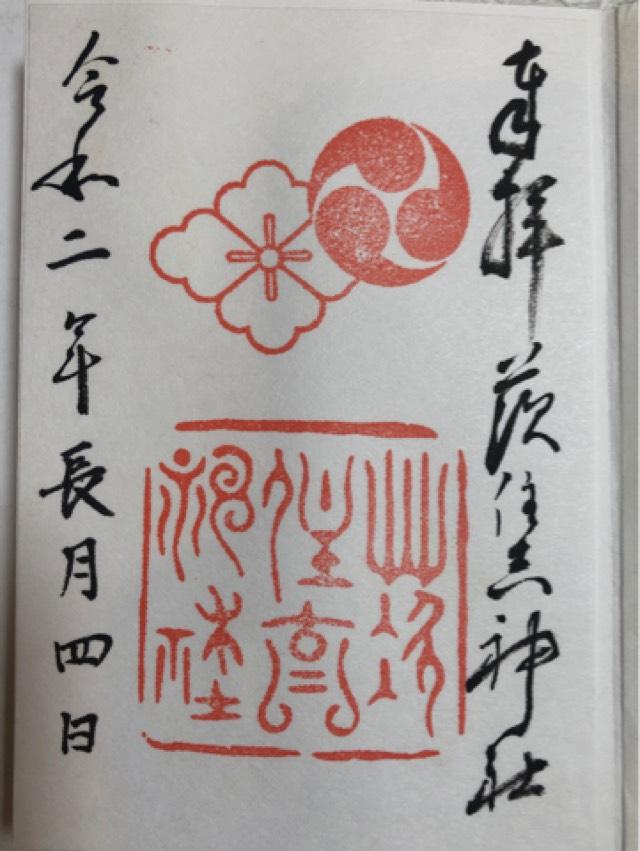 奉拝 茨住吉神社
茨住吉神社
令和二年長月四日